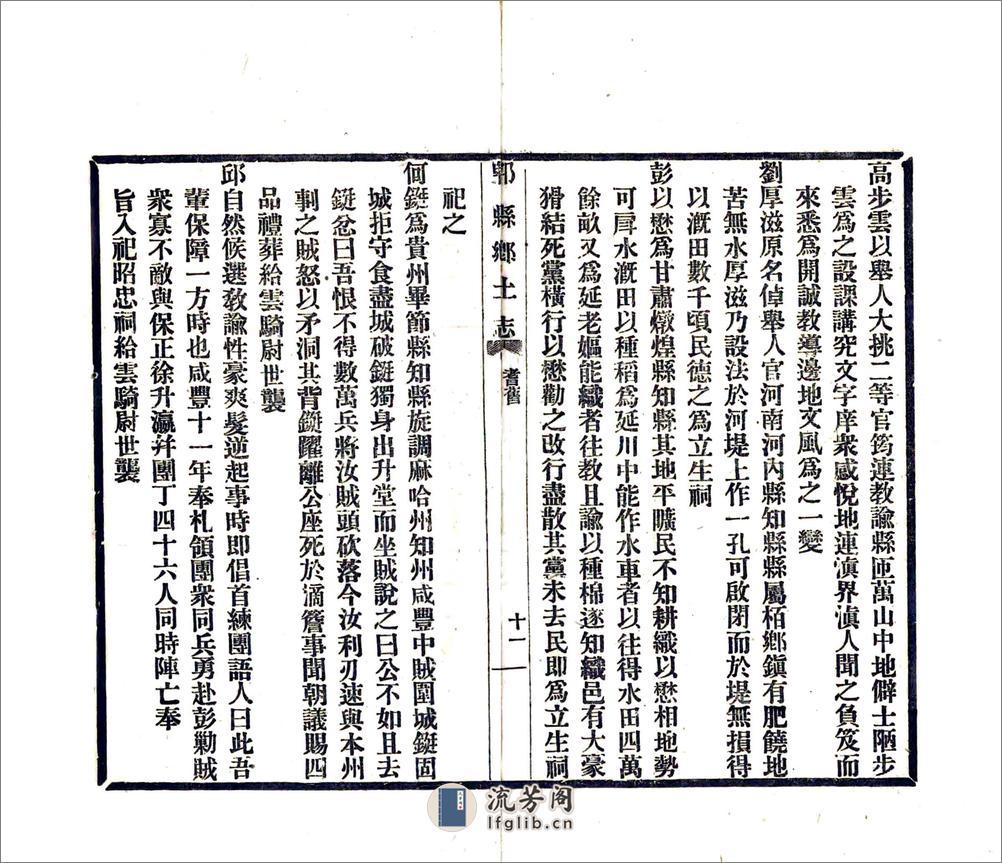 高步雲以舉人大挑二等官筠連教諭縣匝萬山中地僻士陋步
雲爲之設課講究文字庠衆感悅地連滇界滇人聞之負笈而
來悉爲開誠教導邊地文風爲之一變
劉厚滋原名倬舉人官河南河內縣知縣縣屬栢鄉鎮有肥饒地
苦無水厚滋乃設法於河堤上作一孔可啟閉而於堤無損得
以溉田數千頃民德之爲立生祠
彭以懋爲甘肅燉煌縣知縣其地平曠民不知耕織以懋相地勢
可戽水溉田以種稻爲延川中能作水車者以往得水田四萬
餘畝又爲延老嫗能織者往教且諭以種棉遂知織邑有大豪
猾結死黨橫行以懋勸之改行盡散其黨未去民即爲立生祠
郫縣鄉土志
耆舊
十一
祀之
何鋌爲貴州畢節縣知縣旋調麻哈州知州咸豐中賊圍城鋌固
城拒守食盡城破鋌獨身出升堂而坐賊說之曰公不如且去
鋌忿曰吾恨不得數萬兵將汝賊頭砍落今汝利刃速與本州
剚之賊怒以矛洞其背鋌躍離公座死於滴簷事聞朝議賜四
品禮葬給雲騎尉世襲
邱自然候選教諭性豪爽髮逆起事時即倡首練團語人曰此吾
輩保障一方時也咸豐十一年奉札領團衆同兵勇赴彭勦賊
衆寡不敵與保正徐升瀛幷團丁四十六人同時陣亡奉
旨入祀昭忠祠給雲騎尉世襲
流芳阁
lfglib.cn